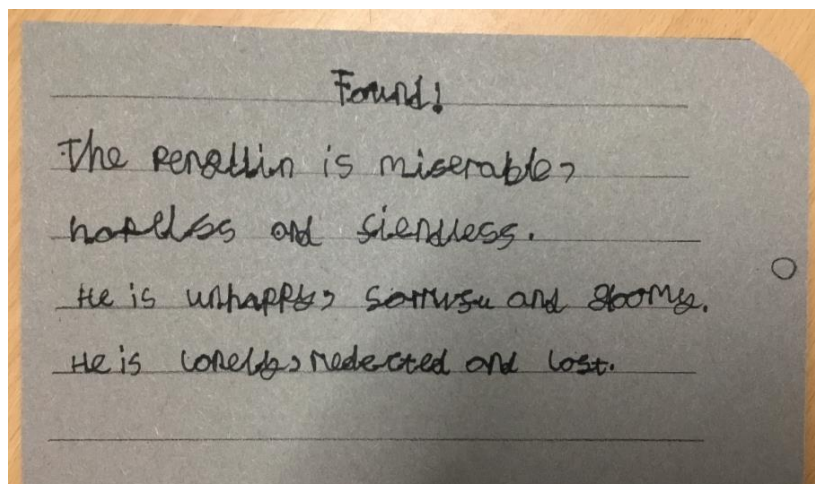 Found!
The penguin is miserable,
hopeless and friendless.
He is unhappy, sorrwfu and gloomy.
He is lonely, redected and lost.